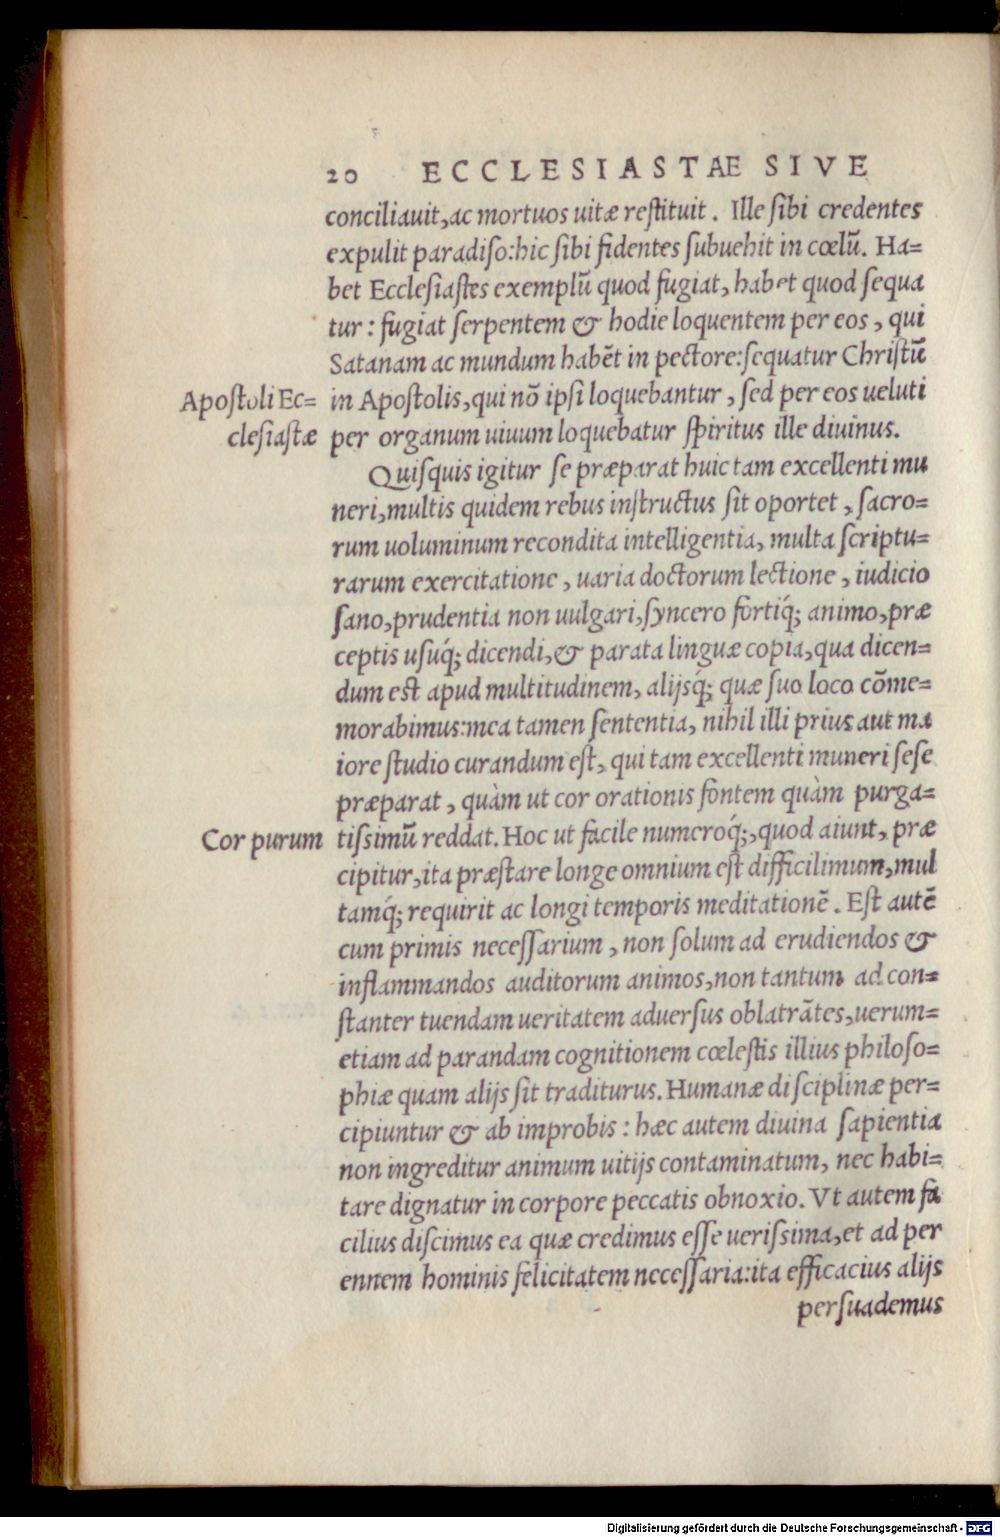 20 ECCLESIASTAE SIVE
conciliauit, ac mortuos uitæ reſtituit. Ille ſibi credentes
expulit paradiſo: hic ſibi fidentes ſubuehit in cœlũ. Ha=
bet Eccleſiaſtes exemplũ quod fugiat, habet quod ſequa
tur: fugiat ſerpentem & hodie loquentem per eos, qui
Satanam ac mundum habẽt in pectore: ſequatur Chriſtũ
Apoſtoli Ec= in Apoſtolis, qui nõ ipſi loquebantur, ſed per eos ueluti
cleſiaſtæ per organum uiuum loquebatur ſpiritus ille diuinus.
Quiſquis igitur ſe præparat huic tam excellenti mu
neri, multis quidem rebus inſtructus ſit oportet, ſacro=
rum uoluminum recondita intelligentia, multa ſcriptu=
rarum exercitatione, uaria doctorum lectione, iudicio
ſano, prudentia non uulgari, ſyncero fortiq́; animo, præ
ceptis uſuq́; dicendi, & parata linguæ copia, qua dicen=
dum eſt apud multitudinem, alijsq́; quæ ſuo loco cõme=
morabimus: mea tamen ſententia, nihil illi prius aut ma
iore ſtudio curandum eſt, qui tam excellenti muneri ſeſe
præparat, quàm ut cor orationis fontem quàm purga=
Cor purum tiſsimũ reddat. Hoc ut facile numeroq́;, quod aiunt, præ
cipitur, ita præſtare longe omnium eſt difficilimum, mul
tamq́; requirit ac longi temporis meditationẽ. Eſt autẽ
cum primis neceſſarium, non ſolum ad erudiendos &
inflammandos auditorum animos, non tantum ad con=
ſtanter tuendam ueritatem aduerſus oblatrãtes, uerum=
etiam ad parandam cognitionem cœleſtis illius philoſo=
phiæ quam alijs ſit traditurus. Humanæ diſciplinæ per=
cipiuntur & ab improbis: hæc autem diuina ſapientia
non ingreditur animum uitijs contaminatum, nec habi=
tare dignatur in corpore peccatis obnoxio. Vt autem fa
cilius diſcimus ea quæ credimus eſſe ueriſsima, et ad per
ennem hominis felicitatem neceſſaria: ita efficacius alijs
perſuademus
Digitalisierung gefördert durch die Deutsche Forschungsgemeinschaft - DFG